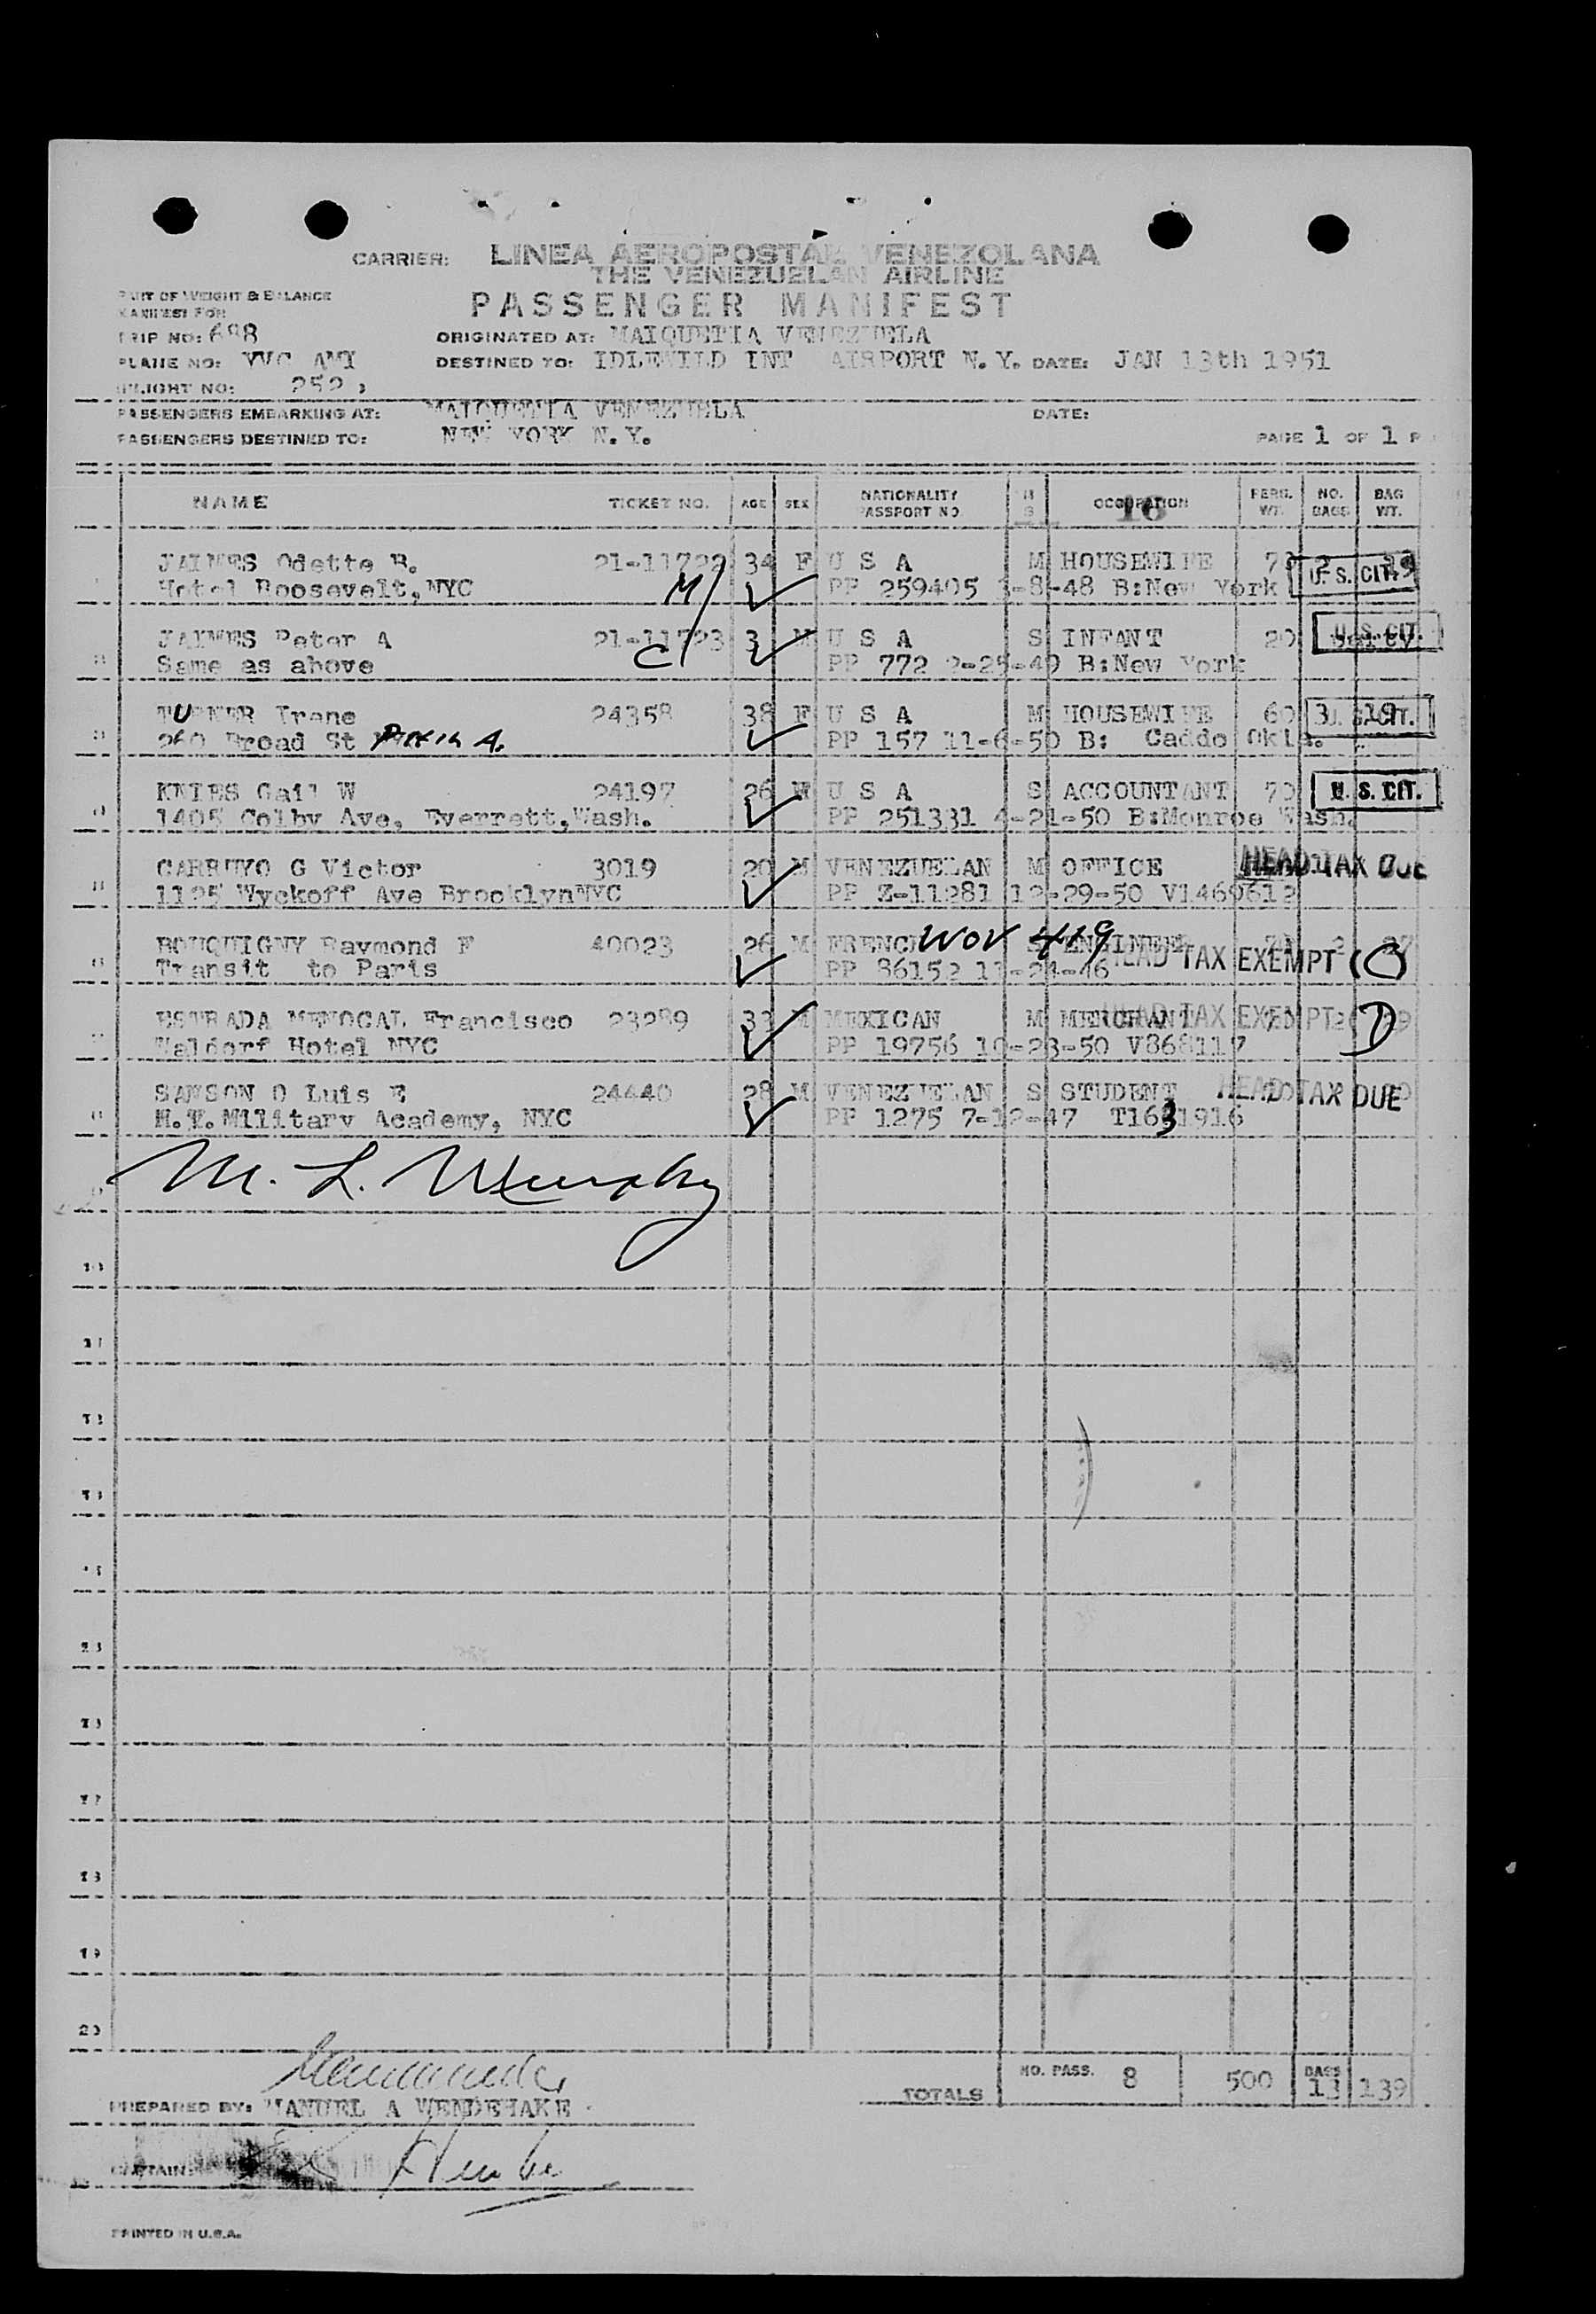 CARRIER: LINEA AEROPOSTAL VENEZOLANA
THE VENEZUELAN AIRLINE
PART OF WEIGHT & BALANCE
MANIFEST FOR
PASSENGER MANIFEST
TRIP NO: 698 ORIGINATED AT: MAIQUETIA VENEZUELA
PLANE NO: YVC AMY DESTINED TO: IDLEWILD INT AIRPORT N.Y. DATE: JAN 13th 1951
FLIGHT NO: 252
PASSENGERS EMBARKING AT: MAIQUETIA VENEZUELA DATE:
PASSENGERS DESTINED TO: NEW YORK N.Y.
PAGE 1 OF 1
NAME TICKET NO. AGE SEX NATIONALITY PASSPORT NO. OCCUPATION PERS. WT. NO. BAGS BAG WT.
16
JAIMES Odette B. 21-11722 34 F U S A M HOUSEWIFE 2
Hotel Roosevelt, NYC M PP 259405 -8-48 B:New York U. S. CIT.
JAIMES Peter A 21-11723 3 M U S A S INFANT 20 U. S. CIT.
Same as above C PP 772 2-25-49 B:New York
TURNER Irene 24358 38 F U S A M HOUSEWIFE 60 3 19 U. S. CIT.
260 Broad St PP 157 11-6-50 B: Caddo Okla.
KNIES Gail W 24197 26 U S A S ACCOUNTANT 70 U. S. CIT.
1405 Colby Ave, Everrett,Wash. PP 251331 4-21-50 B:Monroe Wash.
CARRUYO G Victor 3019 20 M VENEZUELAN M OFFICE HEAD TAX DUE
1125 Wyckoff Ave BrooklynNYC PP Z-11281 12-29-50 V1469612
BOUQUIGNY Raymond F 40023 26 M FRENCH WOV 419 S ENGINEER
Transit to Paris PP 86152 11-21-46 HEAD TAX EXEMPT (C)
ESTRADA MENOCAL Francisco 23289 33 M MEXICAN M MERCHANT HEAD TAX EXEMPT D
Waldorf Hotel NYC PP 19756 10-23-50 V868117
SAMSON O Luis E 24440 28 M VENEZUELAN S STUDENT HEAD TAX DUE
N.Y.Military Academy, NYC PP 1275 7-12-47 T1631916
M. L. Murphy
10
11
12
13
17
18
19
20
TOTALS NO. PASS. 8 500 BAGS 13 139
PREPARED BY: MANUEL A WENDEHAKE
CAPTAIN:
PRINTED IN U.S.A.